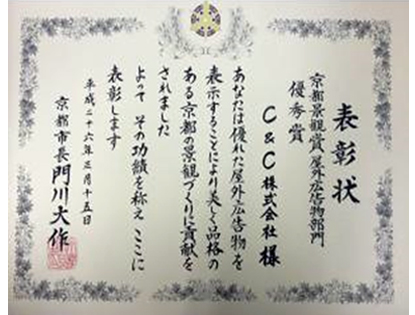 表彰状
京都景観賞 屋外広告物部門
優秀賞
C&C株式会社 様
あなたは優れた屋外広告物を
表示することにより美しく品格の
ある京都の景観づくりに貢献を
されました
よって その功績を称え ここに
表彰します
平成二十六年三月十五日
京都市長 門川大作